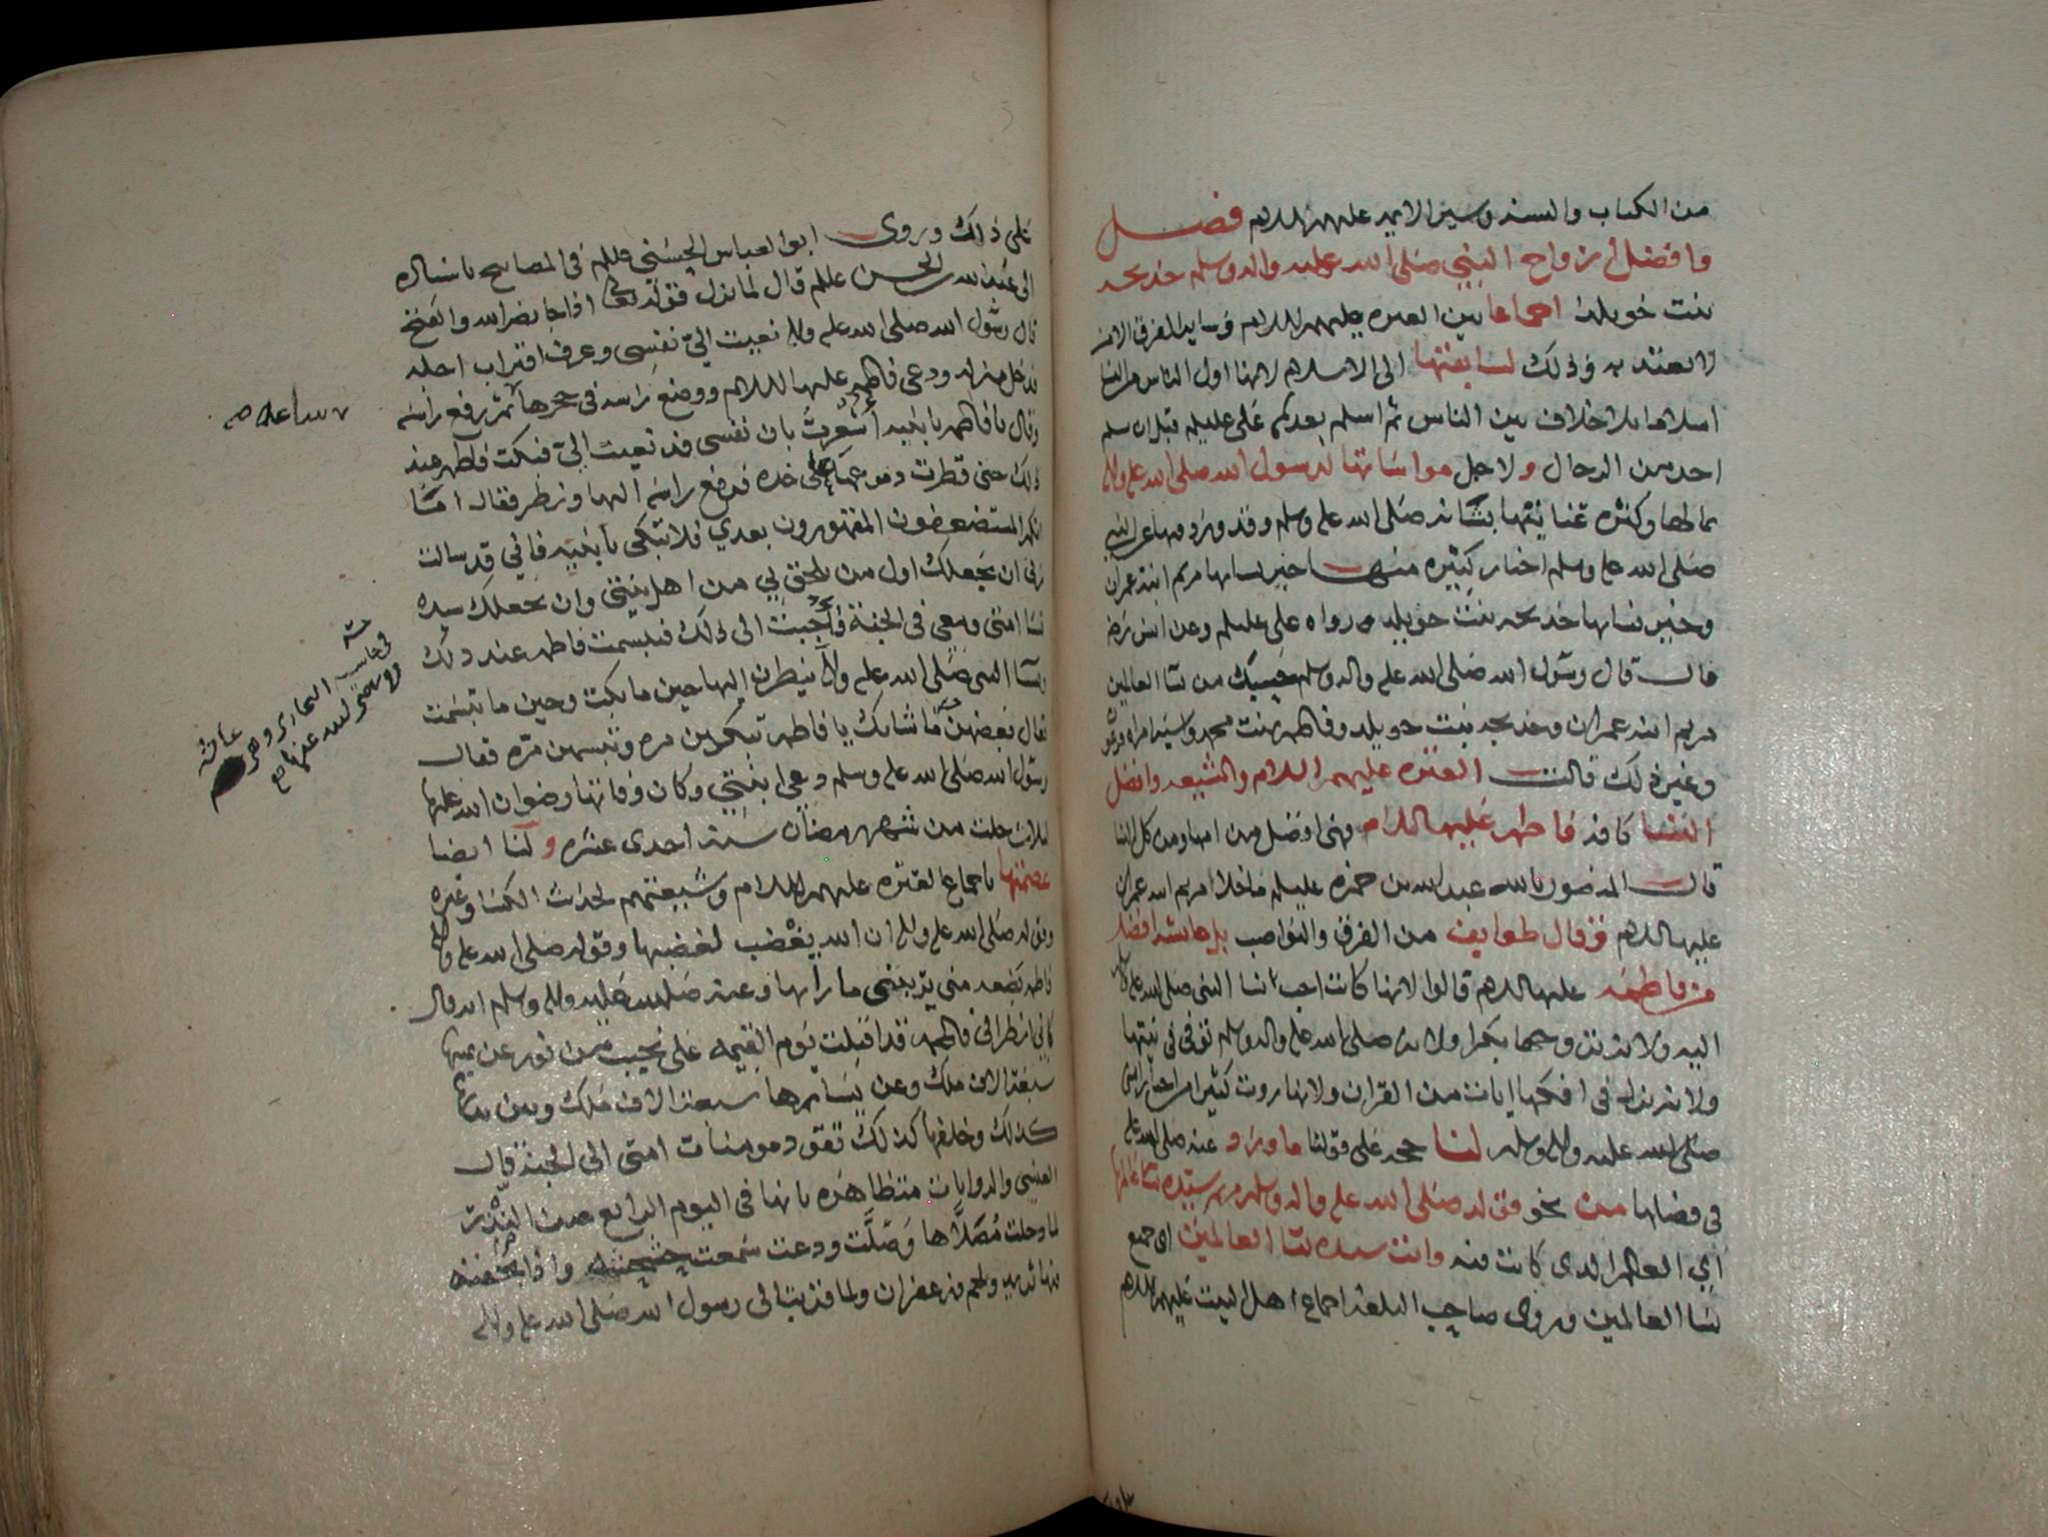 من الكتاب والسنه وسير الايمه عليهم السلام فصل
وافضل ازواج النبي صلى الله عليه واله وسلم خديجه
بنت خويلد اجماعا بين العتره عليهم السلام وساير الفرق الا من
لا يعتد به وذلك لسابقتها الى الاسلام لانها اول الناس من النسا
اسلاما بلا خلاف بين الناس ثم اسلم بعدها علي عليلم قبل ان يسلم
احد من الرجال ولاجل مواساتها لرسول الله صلى الله عليه واله
بمالها وكثره عنايتها بشانه صلى الله عليه وسلم وقد ورد فيها عن النبي
صلى الله عليه وسلم اخبار كثيره منها خير نسايها مريم ابنة عمران
وخير نسايها خديجه بنت خويلد رواه علي عليلم وعن انس
قال قال رسول الله صلى الله عليه واله وسلم حسبك من نسا العالمين
مريم ابنة عمران وخديجه بنت خويلد وفاطمه بنت محمد واسيه امراه فرعون
وغير ذلك قالت العتره عليهم السلام والشيعه وافضل
النسا كافه فاطمه عليها السلام وهي افضل من امها ومن كل النسا
قال المنصور بالله عبدالله بن حمزه عليلم ما خلا مريم ابنة عمران
عليها السلام وقال طوايف من الفرق والنواصب بل عايشه افضل
من فاطمه عليها السلام قالوا لانها كانت احب نسا النبي صلى الله عليه وسلم
اليه ولانه تزوجها بكرا ولانه صلى الله عليه واله وسلم توفي في بيتها
ولانه نزل في افكها ايات من القران ولانها روت كثيرا من اخبار النبي
صلى الله عليه واله وسلم لنا حجه على قولنا ما ورد عنه صلى الله عليه
في فضلها من نحو قوله صلى الله عليه واله وسلم مريم سيده نسا عالمها
اي العالم الذي كانت فيه وانت سيده نسا العالمين اي جميع
نسا العالمين وروى صاحب البلغه اجماع اهل البيت عليهم السلام
على ذلك وروى ابو العباس الحسني عليلم في المصابيح باسناده
الى عبدالله بن الحسن عليلم قال لما نزل قوله تعالى اذا جا نصر الله والفتح
قال رسول الله صلى الله عليه واله نعيت الي نفسي وعرف اقتراب اجله
فدخل منزله ودعى فاطمه عليها السلام ووضع راسه في حجرها ثم رفع راسه
وقال يا فاطمه يا بنيه اشعرت بان نفسي قد نعيت الي فبكت فاطمه عند
ذلك حتى قطرت دموعها على خده فرفع راسه اليها ونظر فقال اما
انكم المستضعفون المقهورون بعدي فلا تبكي يا بنيه فاني قد سالت
ربي ان يجعلك اول من يلحق بي من اهل بيتي وان يجعلك سيده
نسا امتي ومعي في الجنة فاجبت الى ذلك فتبسمت فاطمه عند ذلك
ونسا النبي صلى الله عليه واله ينظرن اليها حين ما بكت وحين ما تبسمت
فقال بعضهن ما شانك يا فاطمه تبكين مره وتبسمين مره فقال
رسول الله صلى الله عليه وسلم دعي ابنتي وكان وفاتها رضوان الله عليها
لثلاث خلت من شهر رمضان سنة احدى عشره ولنا ايضا
عصمتها باجماع العتره عليهم السلام وشيعتهم لحديث الكسا وغيره
وقوله صلى الله عليه واله ان الله يغضب لغضبها وقوله صلى الله عليه واله
فاطمه بضعه مني يريبني ما رابها وعنه صلى الله عليه واله وسلم انه قال
كاني انظر الى فاطمه قد اقبلت يوم القيمه على نجيب من نور عن يمينها
سبعة الاف ملك وعن يسارها سبعة الاف ملك وبين يديها
كذلك وخلفها كذلك تقود مومنات امتي الى الجنة قال
العنسي والروايات متظاهره بانها في اليوم الرابع من النذر
لما دخلت مصلاها وصلت ودعت سمعت واذا بجفنه
فيها ثريد ولحم وزعفران ولما قربت الى رسول الله صلى الله عليه واله
ساعه
في حاشيه
البخاري وهي عايشه
رضي الله عنها